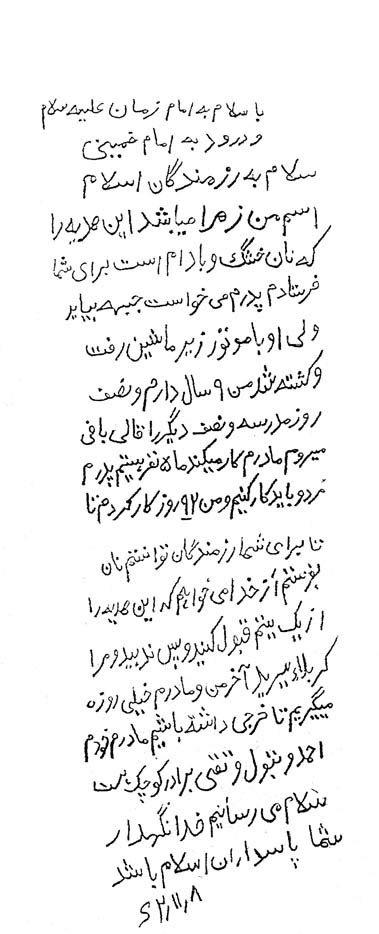 با سلام به امام زمان علیه سلام
و درود به امام خمینی
سلام به رزمندگان اسلام
اسم من زهرا میباشد این هدیه را
که نان خشک و بادام است برای شما
فرستادم پدرم می خواست جبهه بیاید
ولی او با موتور زیر ماشین رفت
و کشته شد من ۹ سال دارم و نصف
روز مدرسه و نصف دیگر را قالی بافی
میروم مادرم کار میکند ما ۵ نفر هستیم پدرم
مُرد و باید کار کنیم و من ۹۲ روز کار کردم تا
تا برای شما رزمندگان توانستم نان
بفرستم از خدا می خواهم که این هدیه را
از یک یتیم قبول کنید و پس ندهید و مرا
کربلا ببرید آخر من و مادرم خیلی روزه
میگیریم تا خرجی داشته باشیم مادرم خودم
احمد و بتول و تقی برادر کوچک ست
سلام می رسانیم خدا نگهدار
شما پاسداران اسلام باشد
۶۲٫۱۱٫۸